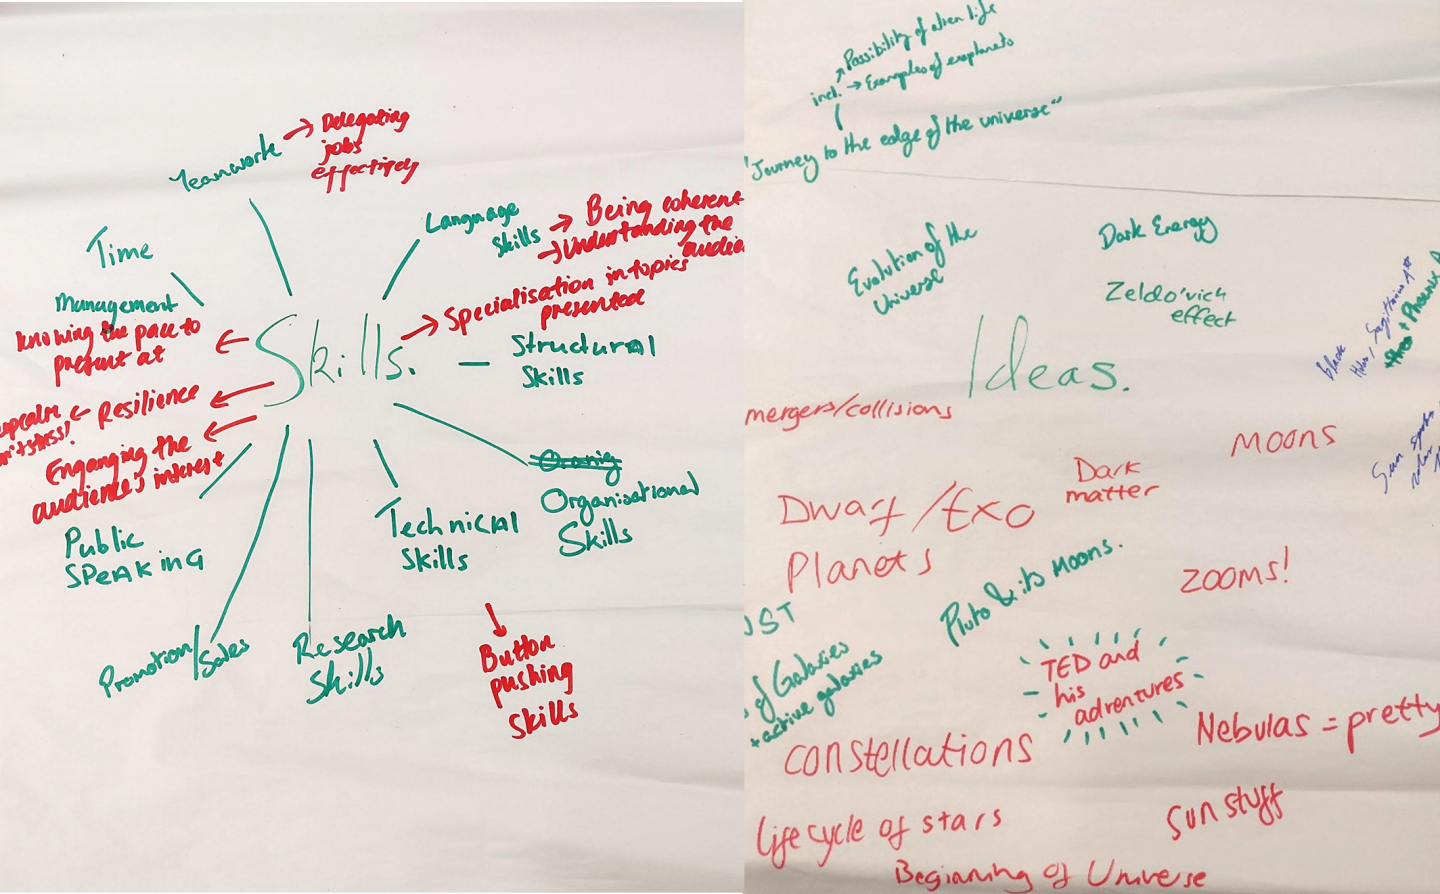 Teamwork → Delegating
jobs
effectively
Language
Skills → Being coherent
→ Understanding the
Time
Management
knowing the pace to
present at
Skills.
→ Specialisation in topics
presented
Structural
Skills
← Resilience
Enganging the
audience's interest
Public
SPEAKING
Technical
Skills
Organisational
Skills
Promotion/Sales
Research
Skills
Button
pushing
skills
Possibility of alien life
incl. → Examples of exoplanets
"Journey to the edge of the universe"
Evolution of the
Universe
Dark Energy
Zeldo'vich
effect
Ideas.
black
Holes, Sagittarius A*
+ Phoenix A
mergers/collisions
MOONS
Sun
Dark
matter
Dwarf/Exo
Planets
ZOOMS!
Pluto & its Moons.
of Galaxies
+ active galaxies
TED and
his
adventures
Nebulas = pretty
constellations
life cycle of stars
Sun stuff
Beginning of Universe